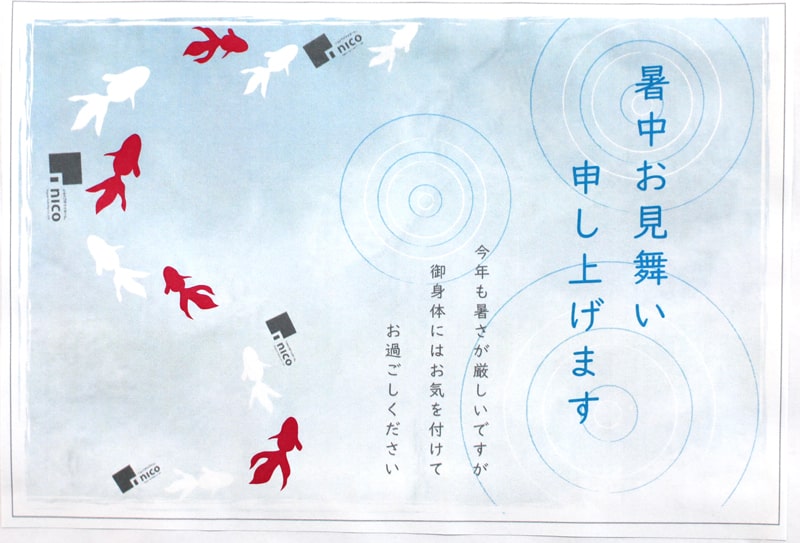 暑中お見舞い
申し上げます
今年も暑さが厳しいですが
御身体にはお気を付けて
お過ごしください
nico
nico
nico
nico